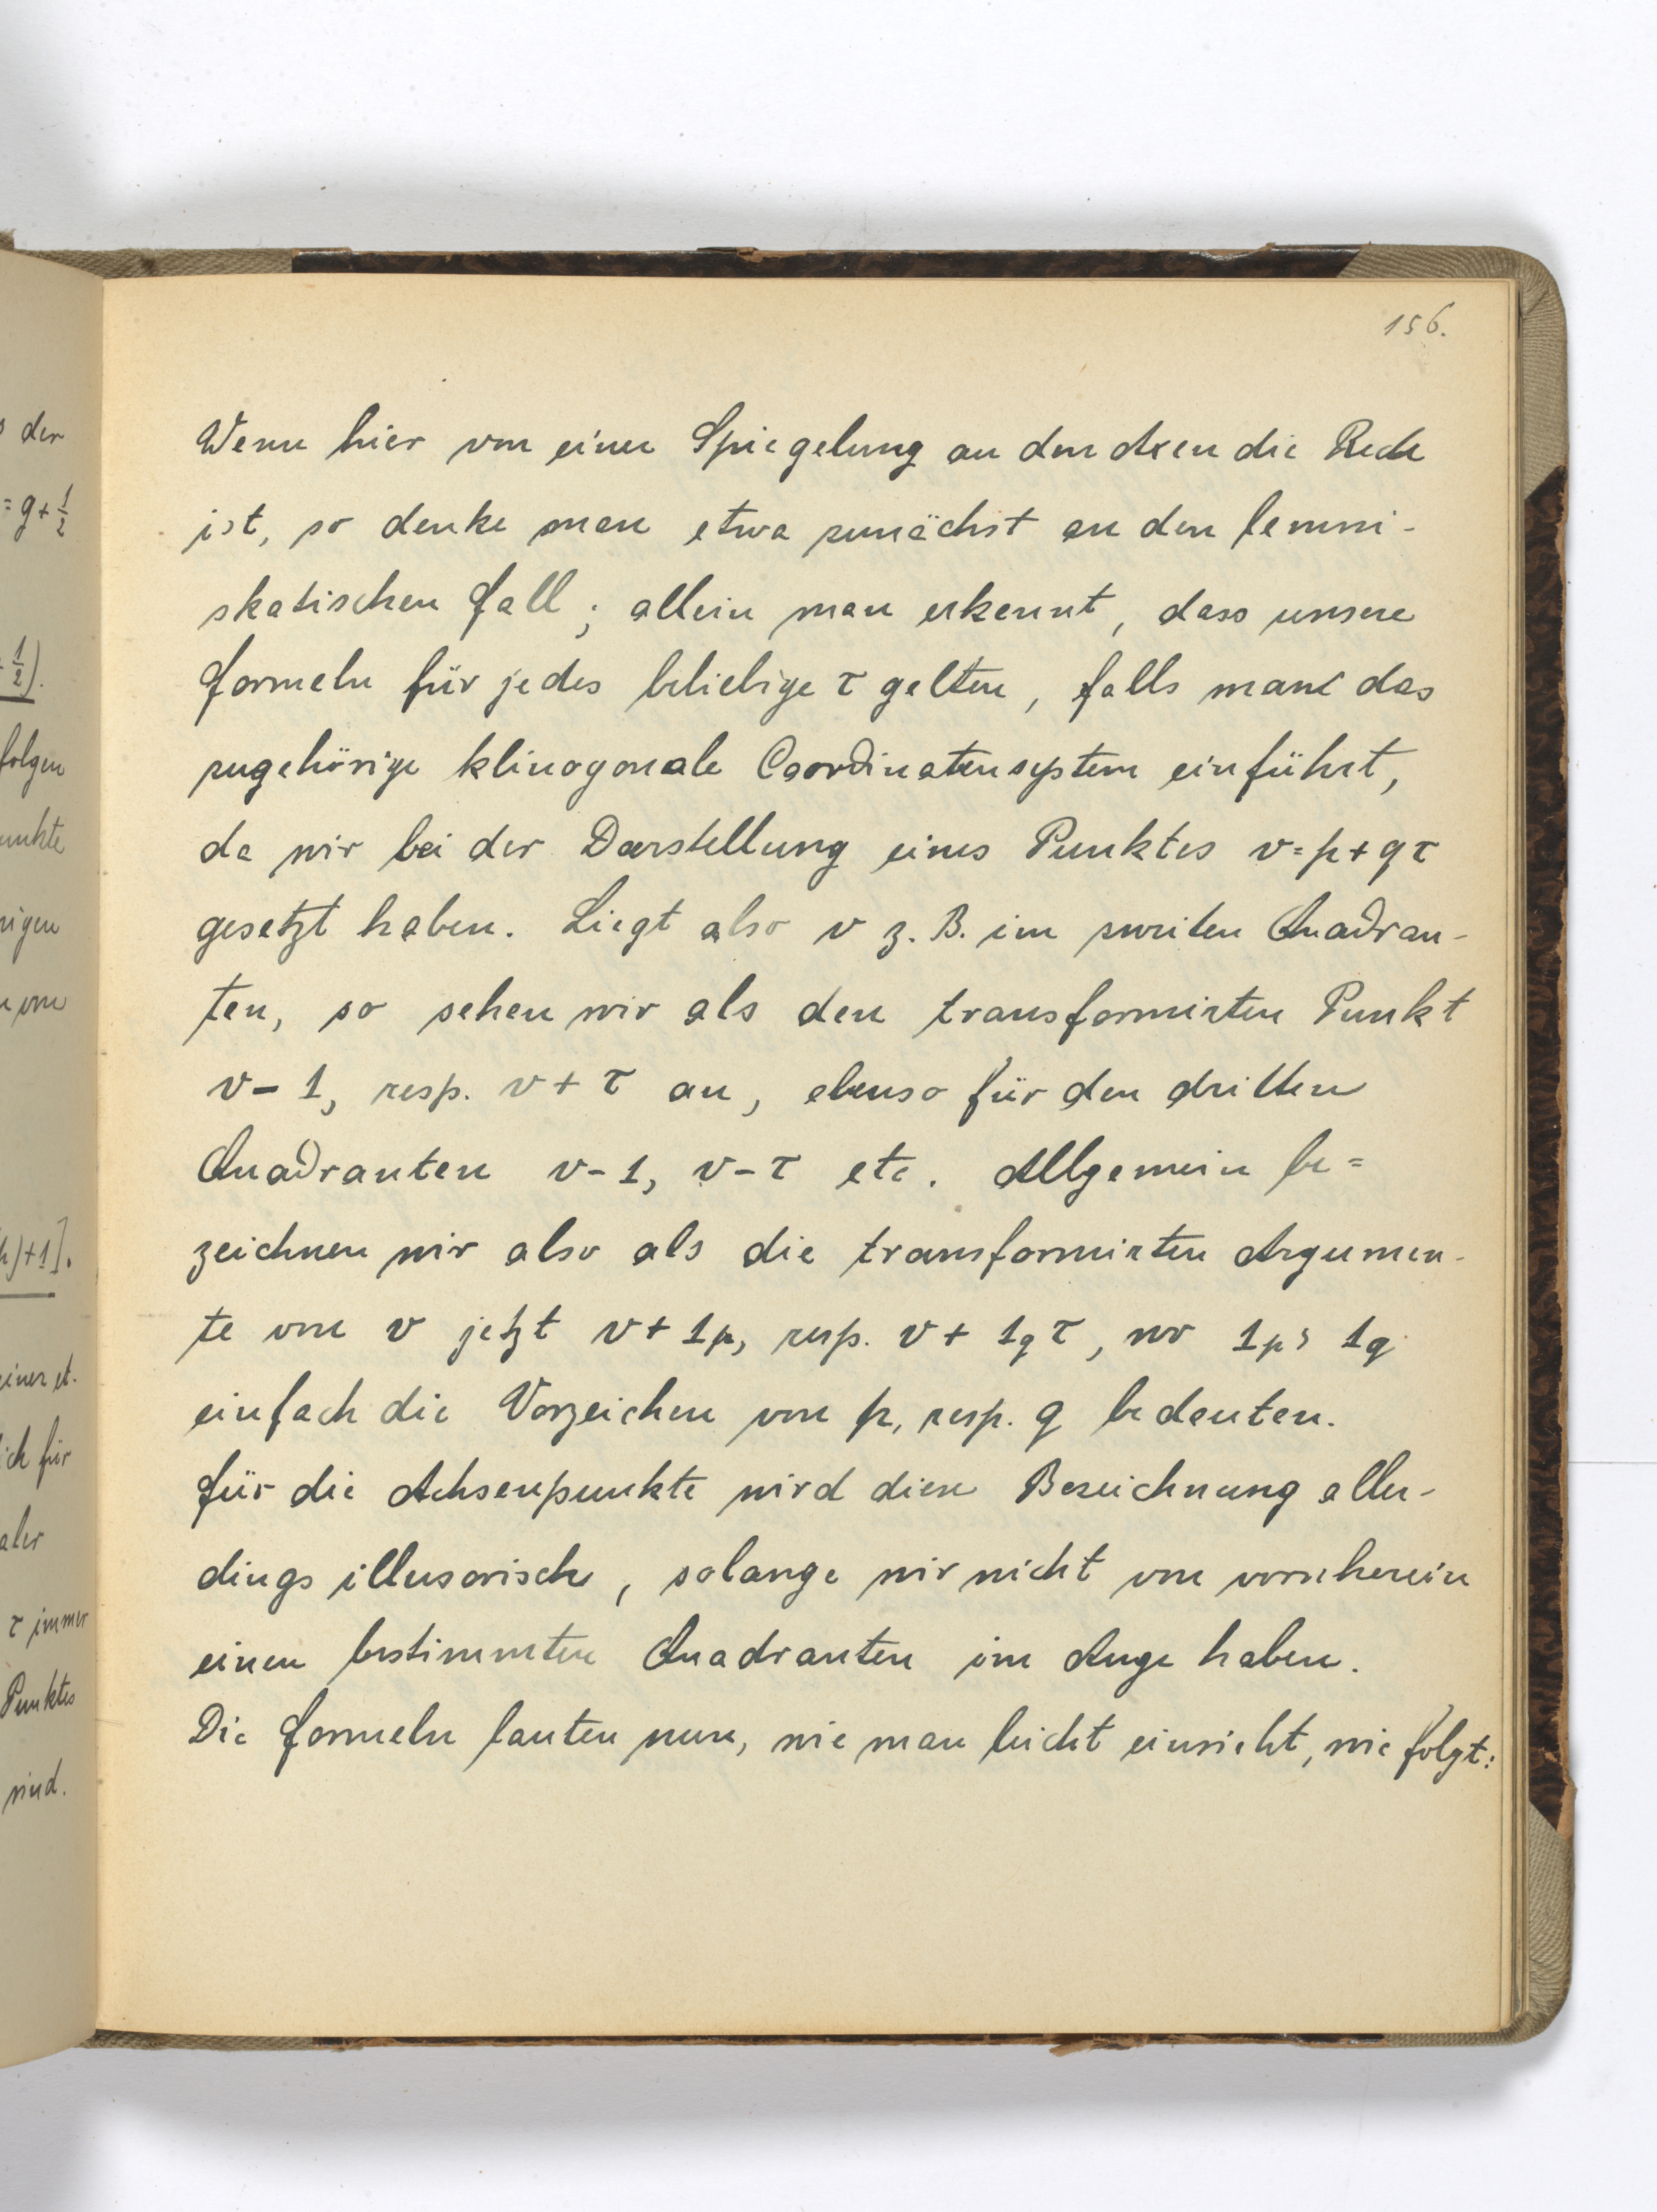 156.
Wenn hier von einer Spiegelung an den Axen die Rede
ist, so denke man etwa zunächst an den lemni-
skatischen Fall; allein man erkennt, dass unsere
Formeln für jedes beliebige τ gelten, falls man das
zugehörige klinogonale Coordinatensystem einführt,
da wir bei der Darstellung eines Punktes v=p+qτ
gesetzt haben. Liegt also v z. B. im zweiten Quadran-
ten, so sehen wir als den transformirten Punkt
v-1, resp. v+τ an, ebenso für den dritten
Quadranten v-1, v-τ etc. Allgemein be=
zeichnen wir also als die transformirten Argumen-
te von v jetzt v+1p, resp. v+1qτ, wo 1p, 1q
einfach die Vorzeichen von p, resp. q bedeuten.
Für die Achsenpunkte wird diese Bezeichnung aller-
dings illusorisch, solange wir nicht von vornherein
einen bestimmten Quadranten im Auge haben.
Die Formeln lauten nun, wie man leicht einsieht, wie folgt:
der
=g+1/2
1/2).
folgen
unkte
)+1].
ich für
τ immer
Punktes
sind.